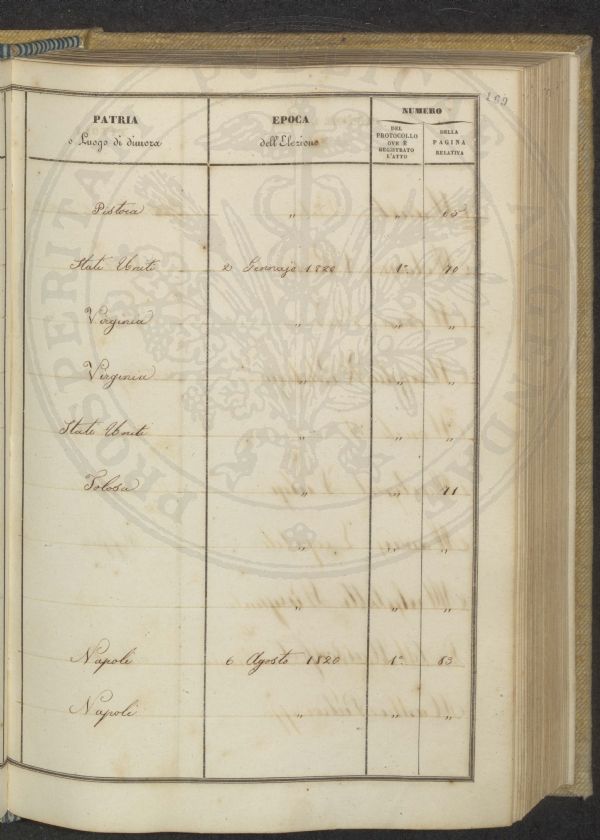 209
PATRIA
o Luogo di dimora
EPOCA
dell'Elezione
NUMERO
DEL
PROTOCOLLO
OVE È
REGISTRATO
L'ATTO
DELLA
PAGINA
RELATIVA
Pistoia " " 65
Stati Uniti 2 Gennajo 1820 1° 70
Virginia " " "
Virginia " " "
Stati Uniti " " "
Tolosa " " 71
" " "
" " "
Napoli 6 Agosto 1820 1° 83
Napoli " " "
PROSPERITATI PUBLICAE AUGENDAE